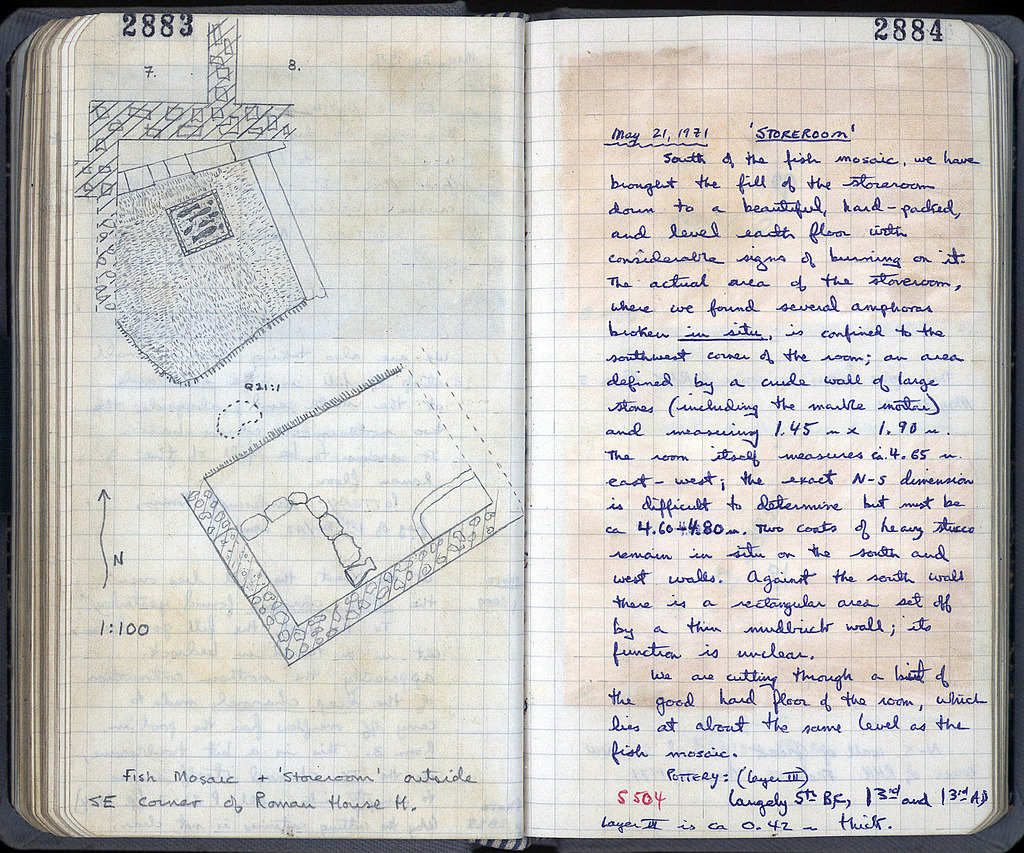 2883
7.
8.
Q21:1
N
1:100
Fish Mosaic + 'Storeroom' outside
SE corner of Roman House H.
2884
May 21, 1971 'STOREROOM'
South of the fish mosaic, we have
brought the fill of the storeroom
down to a beautiful, hard-packed,
and level earth floor with
considerable signs of burning on it.
The actual area of the storeroom,
where we found several amphoras
broken in situ, is confined to the
southwest corner of the room; an area
defined by a crude wall of large
stones (including the marble mortar)
and measuring 1.45 m x 1.90 m.
The room itself measures ca. 4.65 m.
east-west; the exact N-S dimension
is difficult to determine but must be
ca 4.60-4.80 m. Two coats of heavy stucco
remain in situ on the south and
west walls. Against the south wall
there is a rectangular area set off
by a thin mudbrick wall; its
function is unclear.
We are cutting through a bit of
the good hard floor of the room, which
lies at about the same level as the
fish mosaic.
POTTERY: (layer III)
S 504 largely 5th BC, 13rd and 13rd AD
Layer III is ca 0.42 m thick.